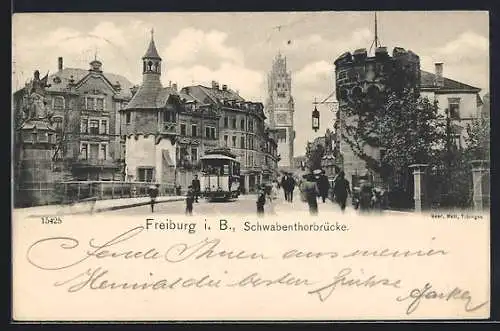 15425
Freiburg i. B., Schwabenthorbrücke.
Gebr. Metz, Tübingen
Sende Ihnen aus meiner
Heimat die besten Grüsse